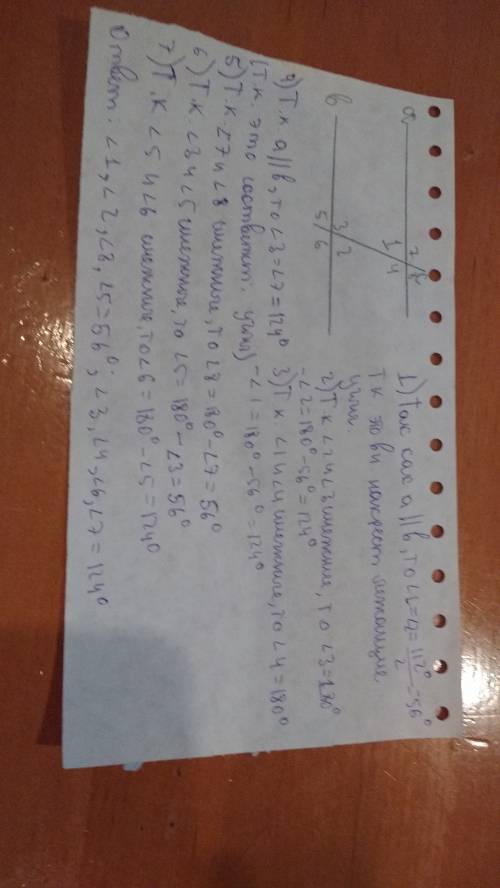 a
7 8
1 4
b
3 2
5 6
1) Так как a || b, то ∠1=∠2= 112°/2 =56°
т.к это вн накрест лежащие
углы.
2) Т.к ∠2 и ∠3 смежные, то ∠3=180°
-∠2=180°-56°=124°
3) Т.к. ∠1 и ∠4 смежные, то ∠4=180°
-∠1=180°-56°=124°
4) Т.к a || b, то ∠3=∠7=124°
(Т.к. это соответст. углы)
5) Т.к. ∠7 и ∠8 смежные, то ∠8=180°-∠7=56°
6) Т.к. ∠3 и ∠5 смежные, то ∠5=180°-∠3=56°
7) Т.к ∠5 и ∠6 смежные, то ∠6=180°-∠5=124°
Ответ: ∠1,∠2,∠8,∠5=56°; ∠3,∠4,∠6,∠7=124°